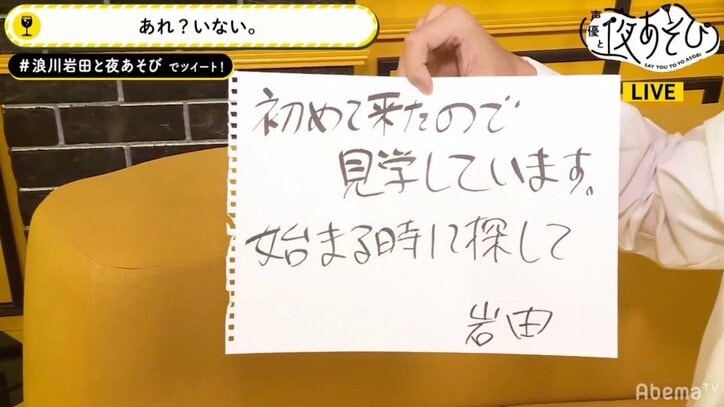 あれ?いない。
#浪川岩田と夜あそび でツイート!
声優と夜あそび
SAY YOU TO YO ASOBI
LIVE
初めて来たので
見学しています。
始まる時に探して
岩田
AbemaTV